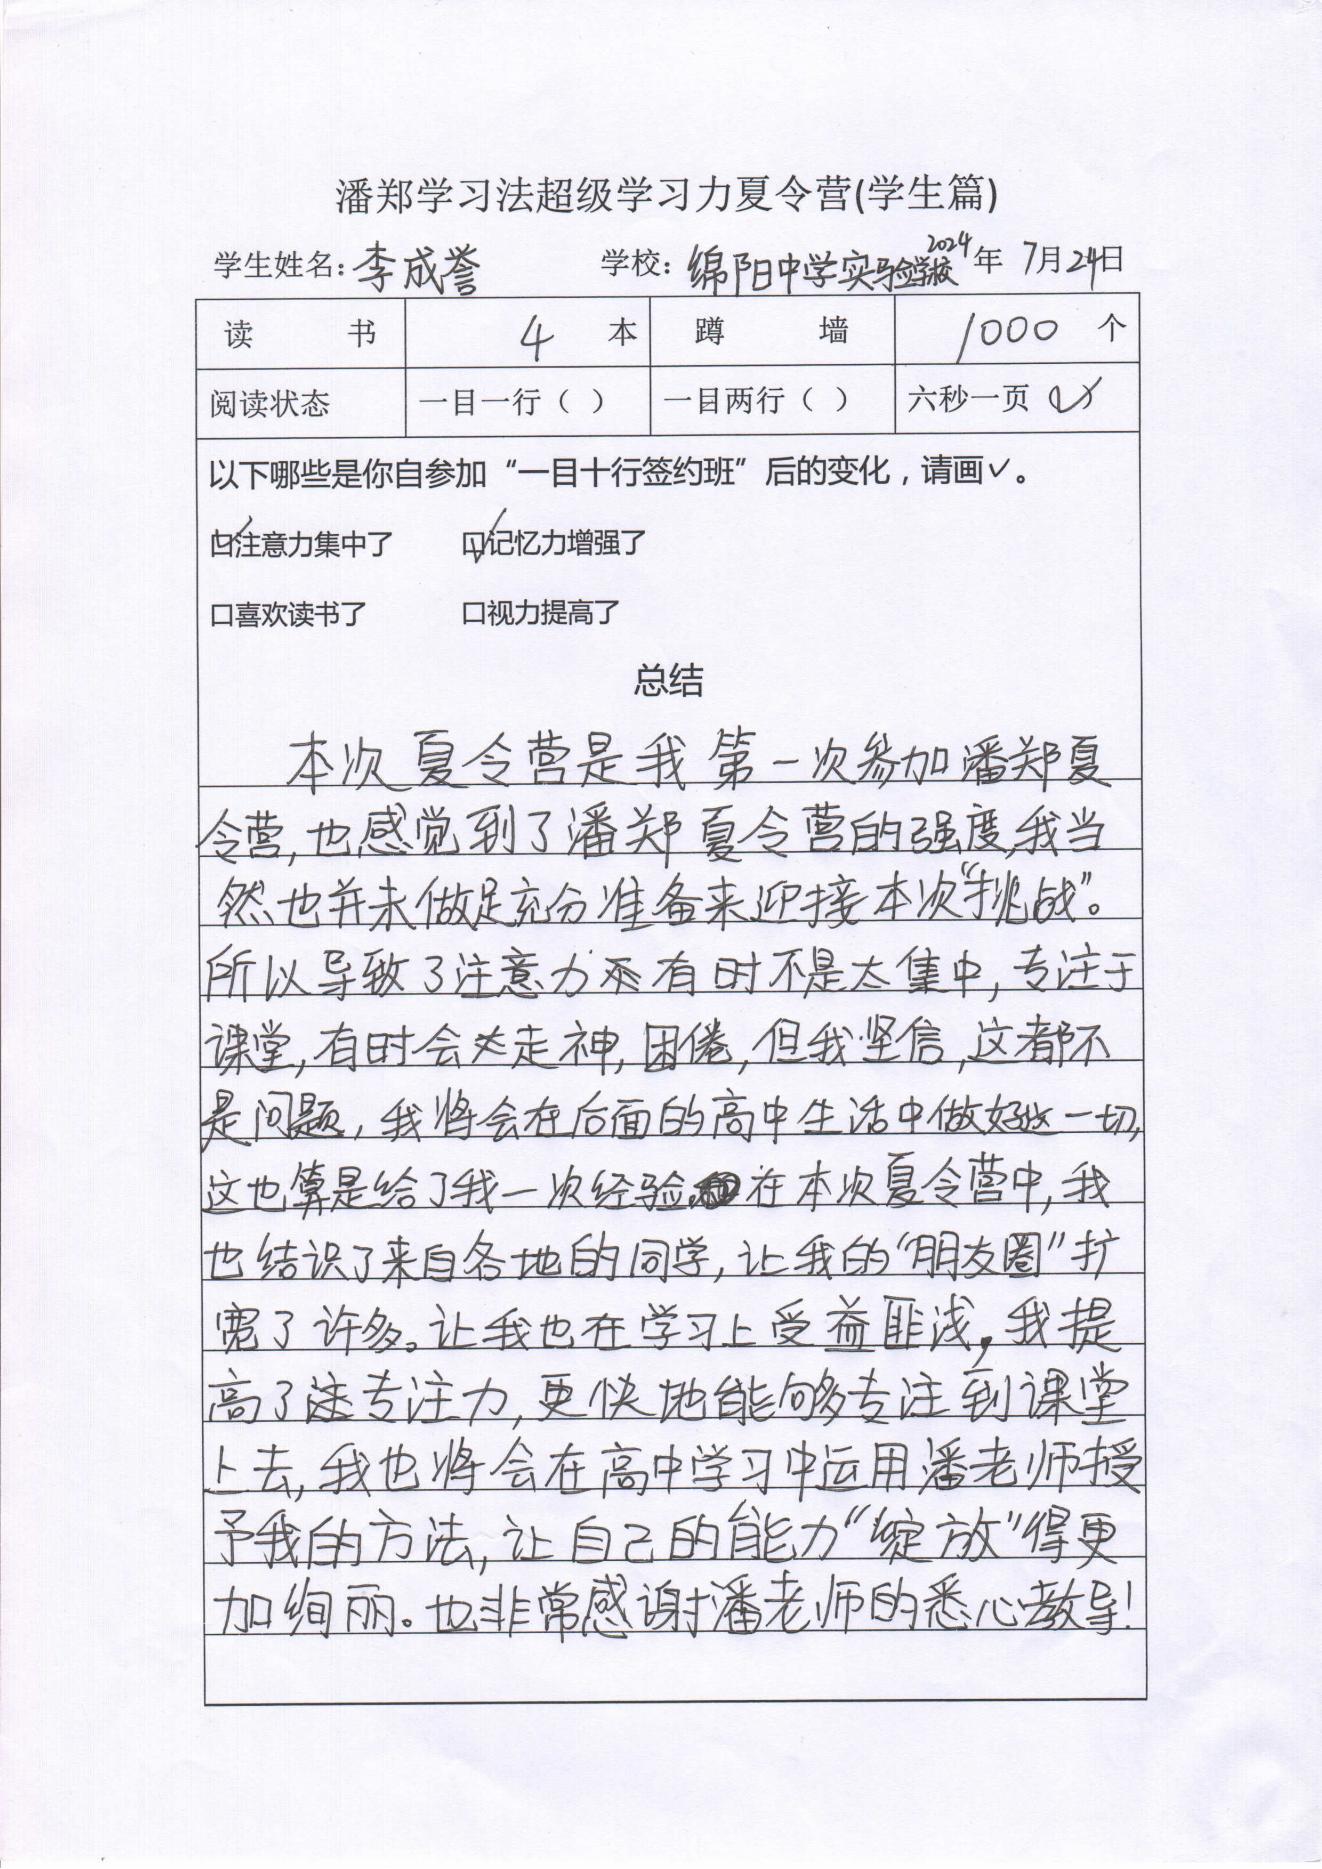 潘郑学习法超级学习力夏令营(学生篇)
学生姓名：李成誉 学校：绵阳中学实验学校 2024年 7月24日
读 书 4 本 蹲 墙 1000 个
阅读状态 一目一行（ ） 一目两行（ ） 六秒一页（✓）
以下哪些是你自参加“一目十行签约班”后的变化，请画✓。
☑注意力集中了 ☑记忆力增强了
口喜欢读书了 口视力提高了
总结
本次夏令营是我第一次参加潘郑夏
令营,也感觉到了潘郑夏令营的强度,我当
然也并未做足充分准备来迎接本次“挑战”。
所以导致了注意力有时不是太集中,专注于
课堂,有时会走神,困倦,但我坚信,这都不
是问题,我将会在后面的高中生活中做好这一切,
这也算是给了我一次经验。在本次夏令营中,我
也结识了来自各地的同学,让我的“朋友圈”扩
宽了许多。让我也在学习上受益匪浅,我提
高了专注力,更快地能够专注到课堂
上去,我也将会在高中学习中运用潘老师授
予我的方法,让自己的能力“绽放”得更
加绚丽。也非常感谢潘老师的悉心教导!